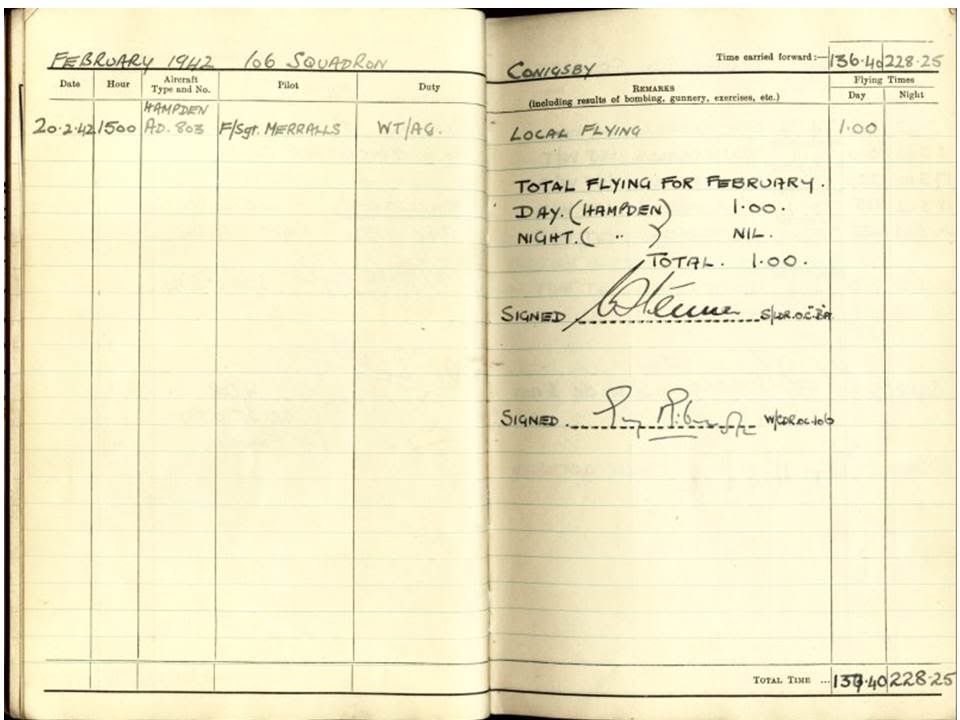 FEBRUARY 1942 106 SQUADRON
Date Hour Aircraft Type and No. Pilot Duty
HAMPDEN
20·2·42 1500 AD. 803 F/Sgt. MERRALLS WT/AG.
CONIGSBY
Time carried forward:— 136·40 228·25
REMARKS
(including results of bombing, gunnery, exercises, etc.)
Flying Times
Day Night
LOCAL FLYING 1·00
TOTAL FLYING FOR FEBRUARY.
DAY. (HAMPDEN) 1·00.
NIGHT. ( " ) NIL.
TOTAL. 1·00.
SIGNED S/LDR.O.C."B"
SIGNED W/CDR.OC.106
TOTAL TIME ... 137·40 228·25